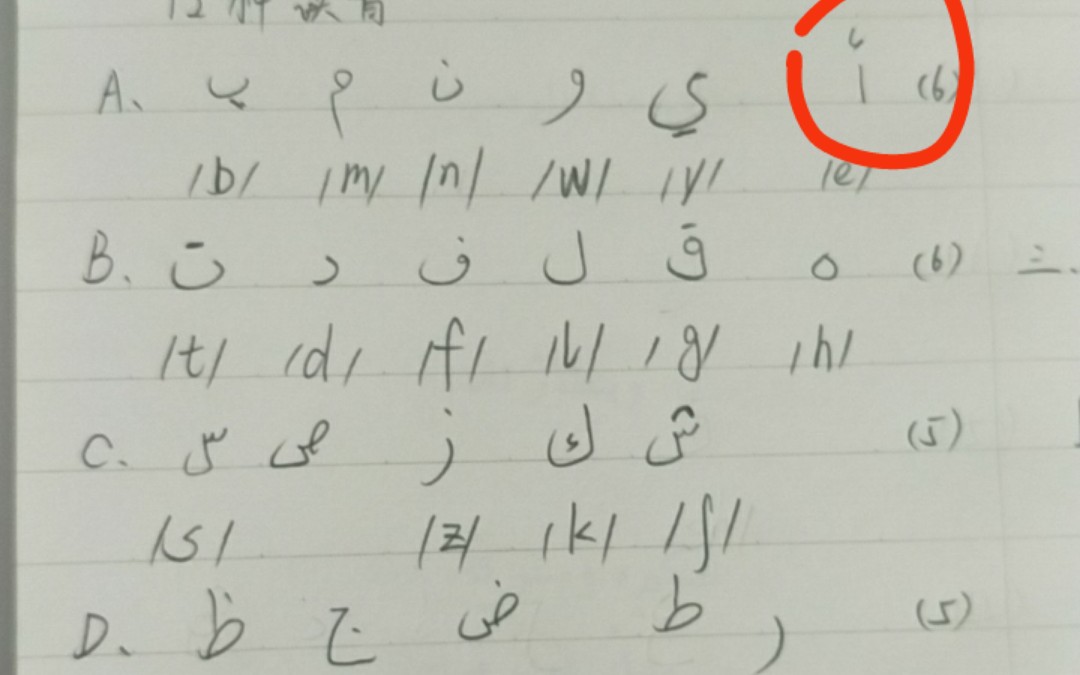 A、 ب م ن و ي أ (6)
/b/ /m/ /n/ /w/ /y/ /e/
B. ت د ف ل ق ه (6) 三.
/t/ /d/ /f/ /l/ /g/ /h/
C. س ص ز ك ش (5)
/s/ /z/ /k/ /ʃ/
D. ظ ج ض ط ر (5)